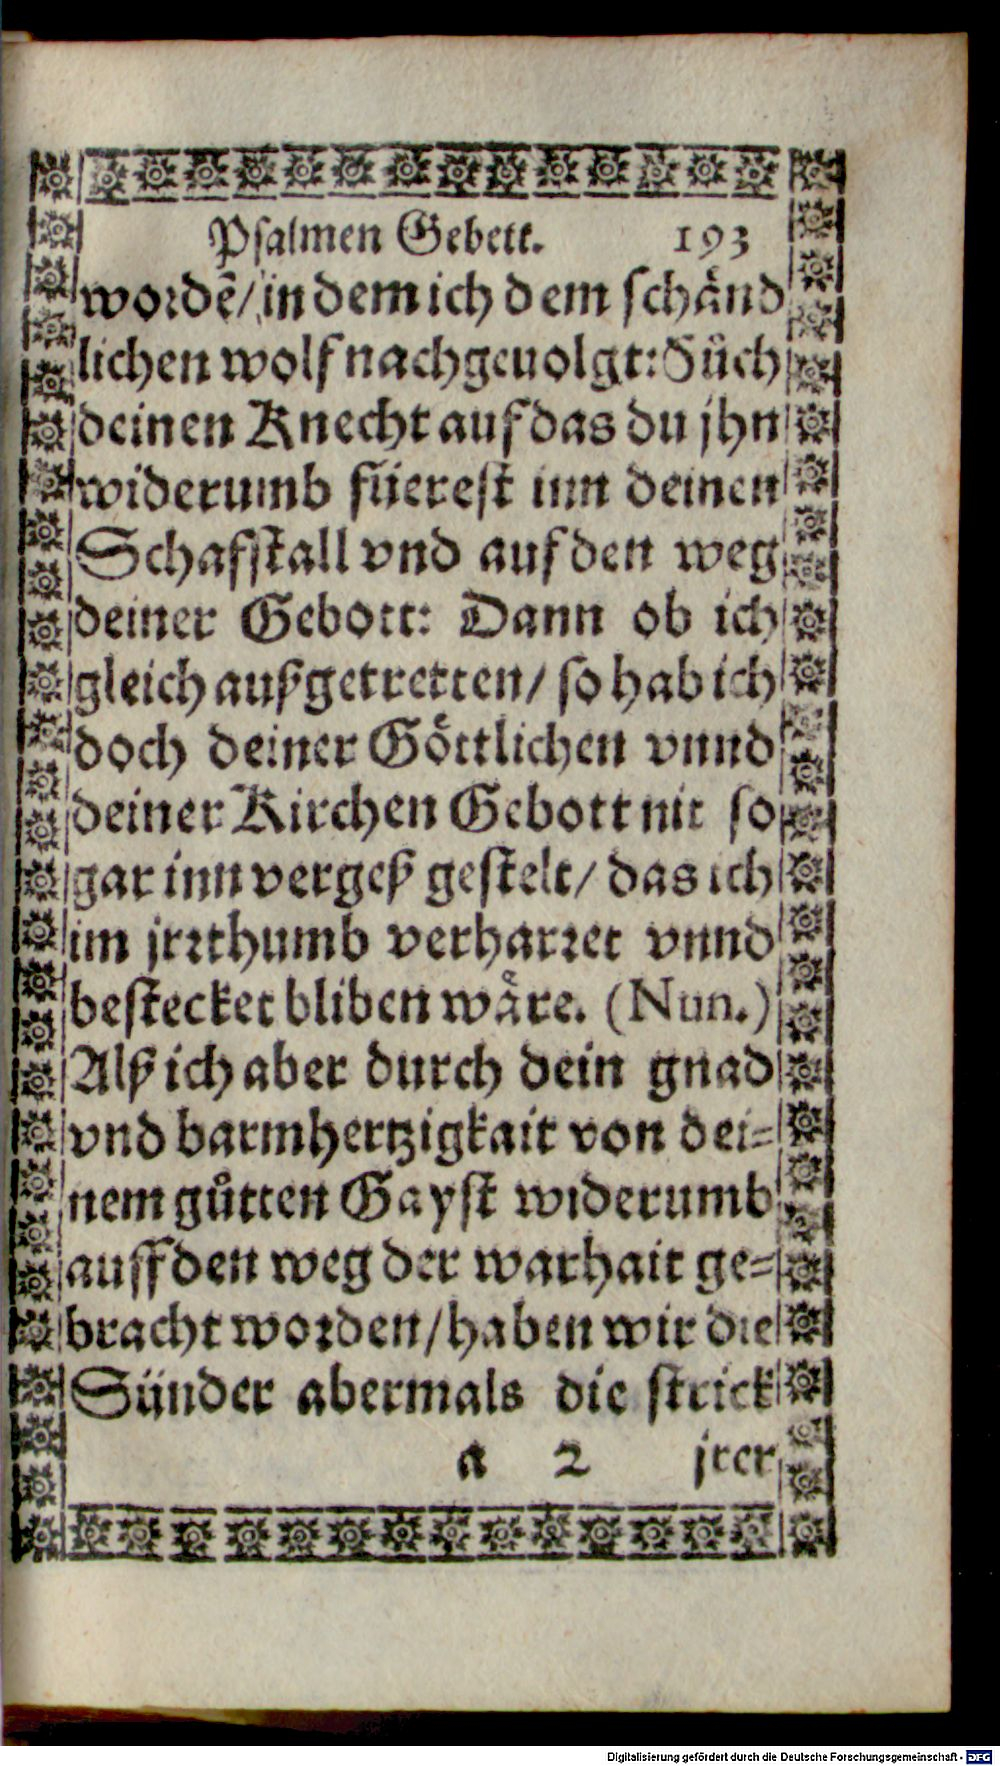 Psalmen Gebett. 193
wordẽ/ in dem ich dem schånd
lichen wolf nachgeuolgt: Sůch
deinen Knecht auf das du jhn
widerumb füerest inn deinen
Schafstall vnd auf den weg
deiner Gebott: Dann ob ich
gleich außgetretten/ so hab ich
doch deiner Göttlichen vnnd
deiner Kirchen Gebott nit so
gar inn vergeß gestelt/ das ich
im jrrthumb verharret vnnd
bestecket bliben wåre. (Nun.)
Alß ich aber durch dein gnad
vnd barmhertzigkait von dei-
nem gůtten Gayst widerumb
auff den weg der warhait ge-
bracht worden/ haben wir die
Sünder abermals die strick
a 2 jrer
Digitalisierung gefördert durch die Deutsche Forschungsgemeinschaft - DFG